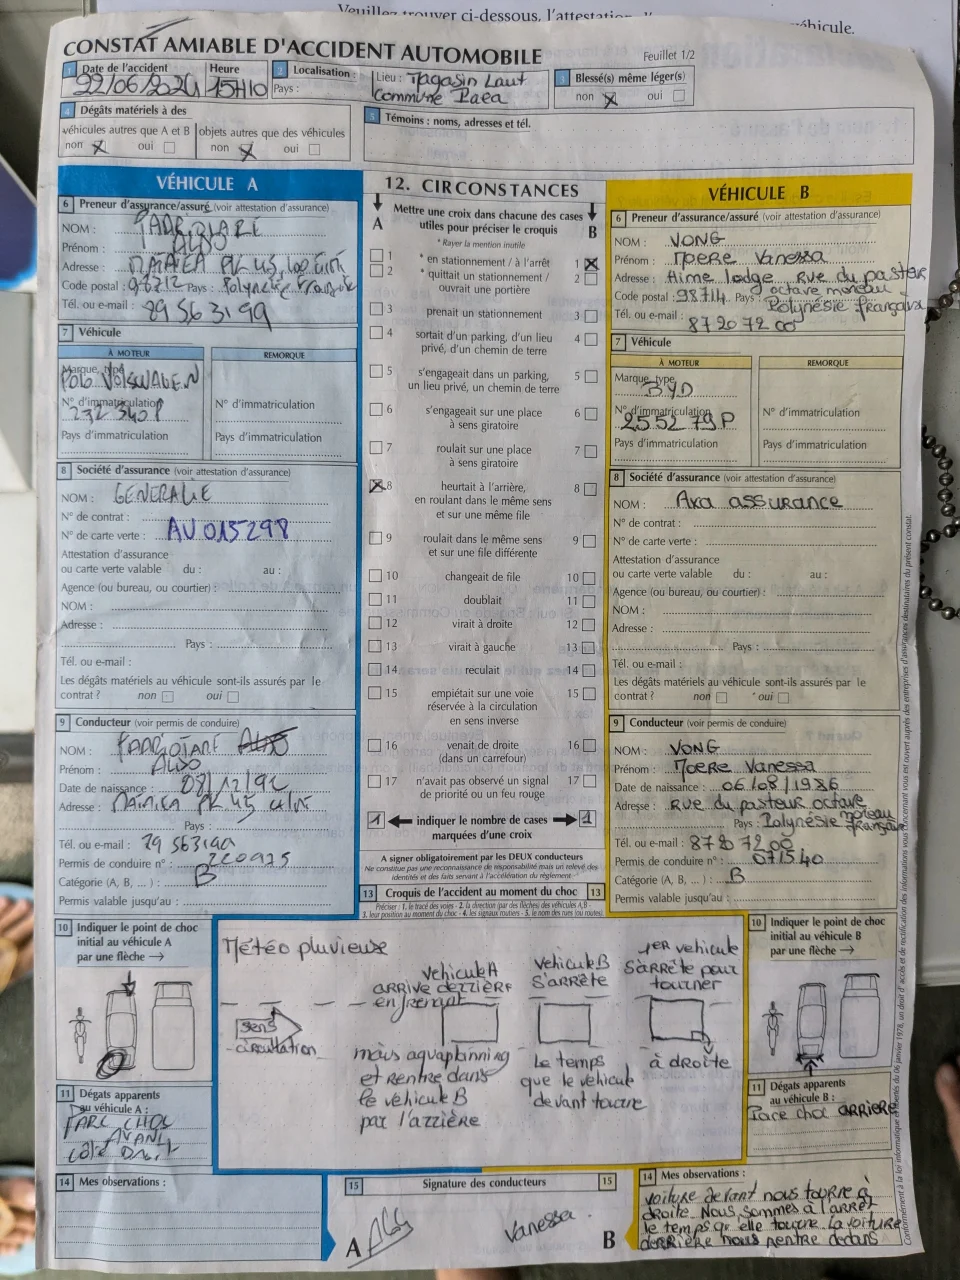 Veuillez trouver ci-dessous, l'attestation d'
véhicule.
CONSTAT AMIABLE D'ACCIDENT AUTOMOBILE
Feuillet 1/2
1 Date de l'accident
22/06/2024
Heure
15H10
2 Localisation :
Pays :
Lieu : Magasin Laut
Commune Paea
3 Blessé(s) même léger(s)
non X oui
4 Dégâts matériels à des
véhicules autres que A et B
objets autres que des véhicules
non X oui
non X oui
5 Témoins : noms, adresses et tél.
VÉHICULE A
6 Preneur d'assurance/assuré (voir attestation d'assurance)
NOM :
Prénom : ALDO
Adresse : MATAIEA PK 45
Code postal : 98712 Pays : Polynésie Française
Tél. ou e-mail : 89 563199
7 Véhicule
À MOTEUR
REMORQUE
Marque, type
POLO VOLSWAGEN
N° d'immatriculation
232 540 P
Pays d'immatriculation
N° d'immatriculation
Pays d'immatriculation
8 Société d'assurance (voir attestation d'assurance)
NOM : GENERALIE
N° de contrat :
N° de carte verte : AU 015298
Attestation d'assurance
ou carte verte valable du : au :
Agence (ou bureau, ou courtier) :
NOM :
Adresse :
Pays :
Tél. ou e-mail :
Les dégâts matériels au véhicule sont-ils assurés par le
contrat ? non oui
9 Conducteur (voir permis de conduire)
NOM :
Prénom : ALDO
Date de naissance : 08/12/92
Adresse : PK 45
Pays :
Tél. ou e-mail :
Permis de conduire n° : 220925
Catégorie (A, B, ... ) : B
Permis valable jusqu'au :
12. CIRCONSTANCES
A
Mettre une croix dans chacune des cases
utiles pour préciser le croquis
B
* Rayer la mention inutile
1 * en stationnement / à l'arrêt 1 X
2 * quittait un stationnement / 2
ouvrait une portière
3 prenait un stationnement 3
4 sortait d'un parking, d'un lieu 4
privé, d'un chemin de terre
5 s'engageait dans un parking, 5
un lieu privé, un chemin de terre
6 s'engageait sur une place 6
à sens giratoire
7 roulait sur une place 7
à sens giratoire
X 8 heurtait à l'arrière, 8
en roulant dans le même sens
et sur une même file
9 roulait dans le même sens 9
et sur une file différente
10 changeait de file 10
11 doublait 11
12 virait à droite 12
13 virait à gauche 13
14 reculait 14
15 empiétait sur une voie 15
réservée à la circulation
en sens inverse
16 venait de droite 16
(dans un carrefour)
17 n'avait pas observé un signal 17
de priorité ou un feu rouge
1 indiquer le nombre de cases 1
marquées d'une croix
A signer obligatoirement par les DEUX conducteurs
Ne constitue pas une reconnaissance de responsabilité mais un relevé des
identités et des faits servant à l'accélération du règlement
VÉHICULE B
6 Preneur d'assurance/assuré (voir attestation d'assurance)
NOM : VONG
Prénom : Moere Vanessa
Adresse : Aime Lodge, Rue du pasteur
octave moreau
Code postal : 98714 Pays : Polynésie française
Tél. ou e-mail : 87 20 72 00
7 Véhicule
À MOTEUR
REMORQUE
Marque, type
BYD
N° d'immatriculation
2552 79 P
Pays d'immatriculation
N° d'immatriculation
Pays d'immatriculation
8 Société d'assurance (voir attestation d'assurance)
NOM : Axa assurance
N° de contrat :
N° de carte verte :
Attestation d'assurance
ou carte verte valable du : au :
Agence (ou bureau, ou courtier) :
NOM :
Adresse :
Pays :
Tél. ou e-mail :
Les dégâts matériels au véhicule sont-ils assurés par le
contrat ? non oui
9 Conducteur (voir permis de conduire)
NOM : VONG
Prénom : Moere Vanessa
Date de naissance : 06/08/1986
Adresse : Rue du pasteur octave
moreau
Pays : Polynésie française
Tél. ou e-mail : 87 20 72 00
Permis de conduire n° : 071540
Catégorie (A, B, ... ) : B
Permis valable jusqu'au :
13 Croquis de l'accident au moment du choc 13
Préciser : 1. le tracé des voies - 2. la direction (par des flèches) des véhicules A,B -
3. leur position au moment du choc - 4. les signaux routiers - 5. le nom des rues (ou routes)
10 Indiquer le point de choc
initial au véhicule A
par une flèche
Météo pluvieuse
Véhicule A
arrive derrière
en freinant
Véhicule B
s'arrête
1er véhicule
s'arrête pour
tourner
sens
circultation
mais aquaplanning
et rentre dans
le véhicule B
par l'arrière
Le temps
que le véhicule
devant tourne
à droite
10 Indiquer le point de choc
initial au véhicule B
par une flèche
11 Dégâts apparents
au véhicule A :
PARC CHOC
AVANT
côté Droit
11 Dégâts apparents
au véhicule B :
Parce choc ARRIERE
14 Mes observations :
15 Signature des conducteurs 15
A
Vanessa
B
14 Mes observations :
voiture devant nous tourne à
droite. Nous sommes à l'arrêt
le temps qu'elle tourne. La voiture
derrière nous rentre dedans